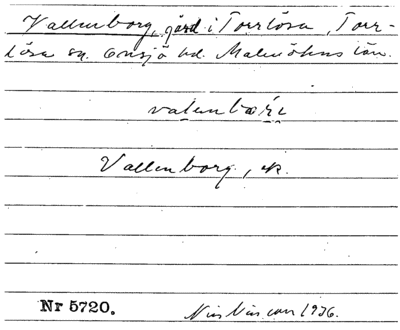 Vallenborg, gård i Torrlösa, Torr-
lösa sn. Onsjö hd. Malmöhus län.
Vallenborg, ek.
Nr 5720. Nils Nilsson 1936.